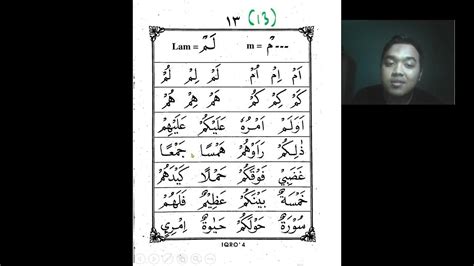 ١٣ (13)
Lam = لَمْ m = ---مْ
اَمْ اِمْ اُمْ لَمْ لِمْ لُمْ
كَمْ كِمْ كُمْ هَمْ هِمْ هُمْ
اَوَلَمْ اَمْرُهُ عَلَيْكُمْ عَلَيْهِمْ
ذٰلِكُمْ رَاَوْهُمْ هَمْسًا جَمْعًا
غَضَبِيْ فَوْقَكُمْ حَمْلًا كَيْدَهُمْ
خَمْسَةٌ بَيْنَكُمْ عَظِيْمٌ فَلَهُمْ
سُوْرَةٌ حَوْلَكُمْ حَيٰوةٌ اِمْرِيْ
IQRO' 4